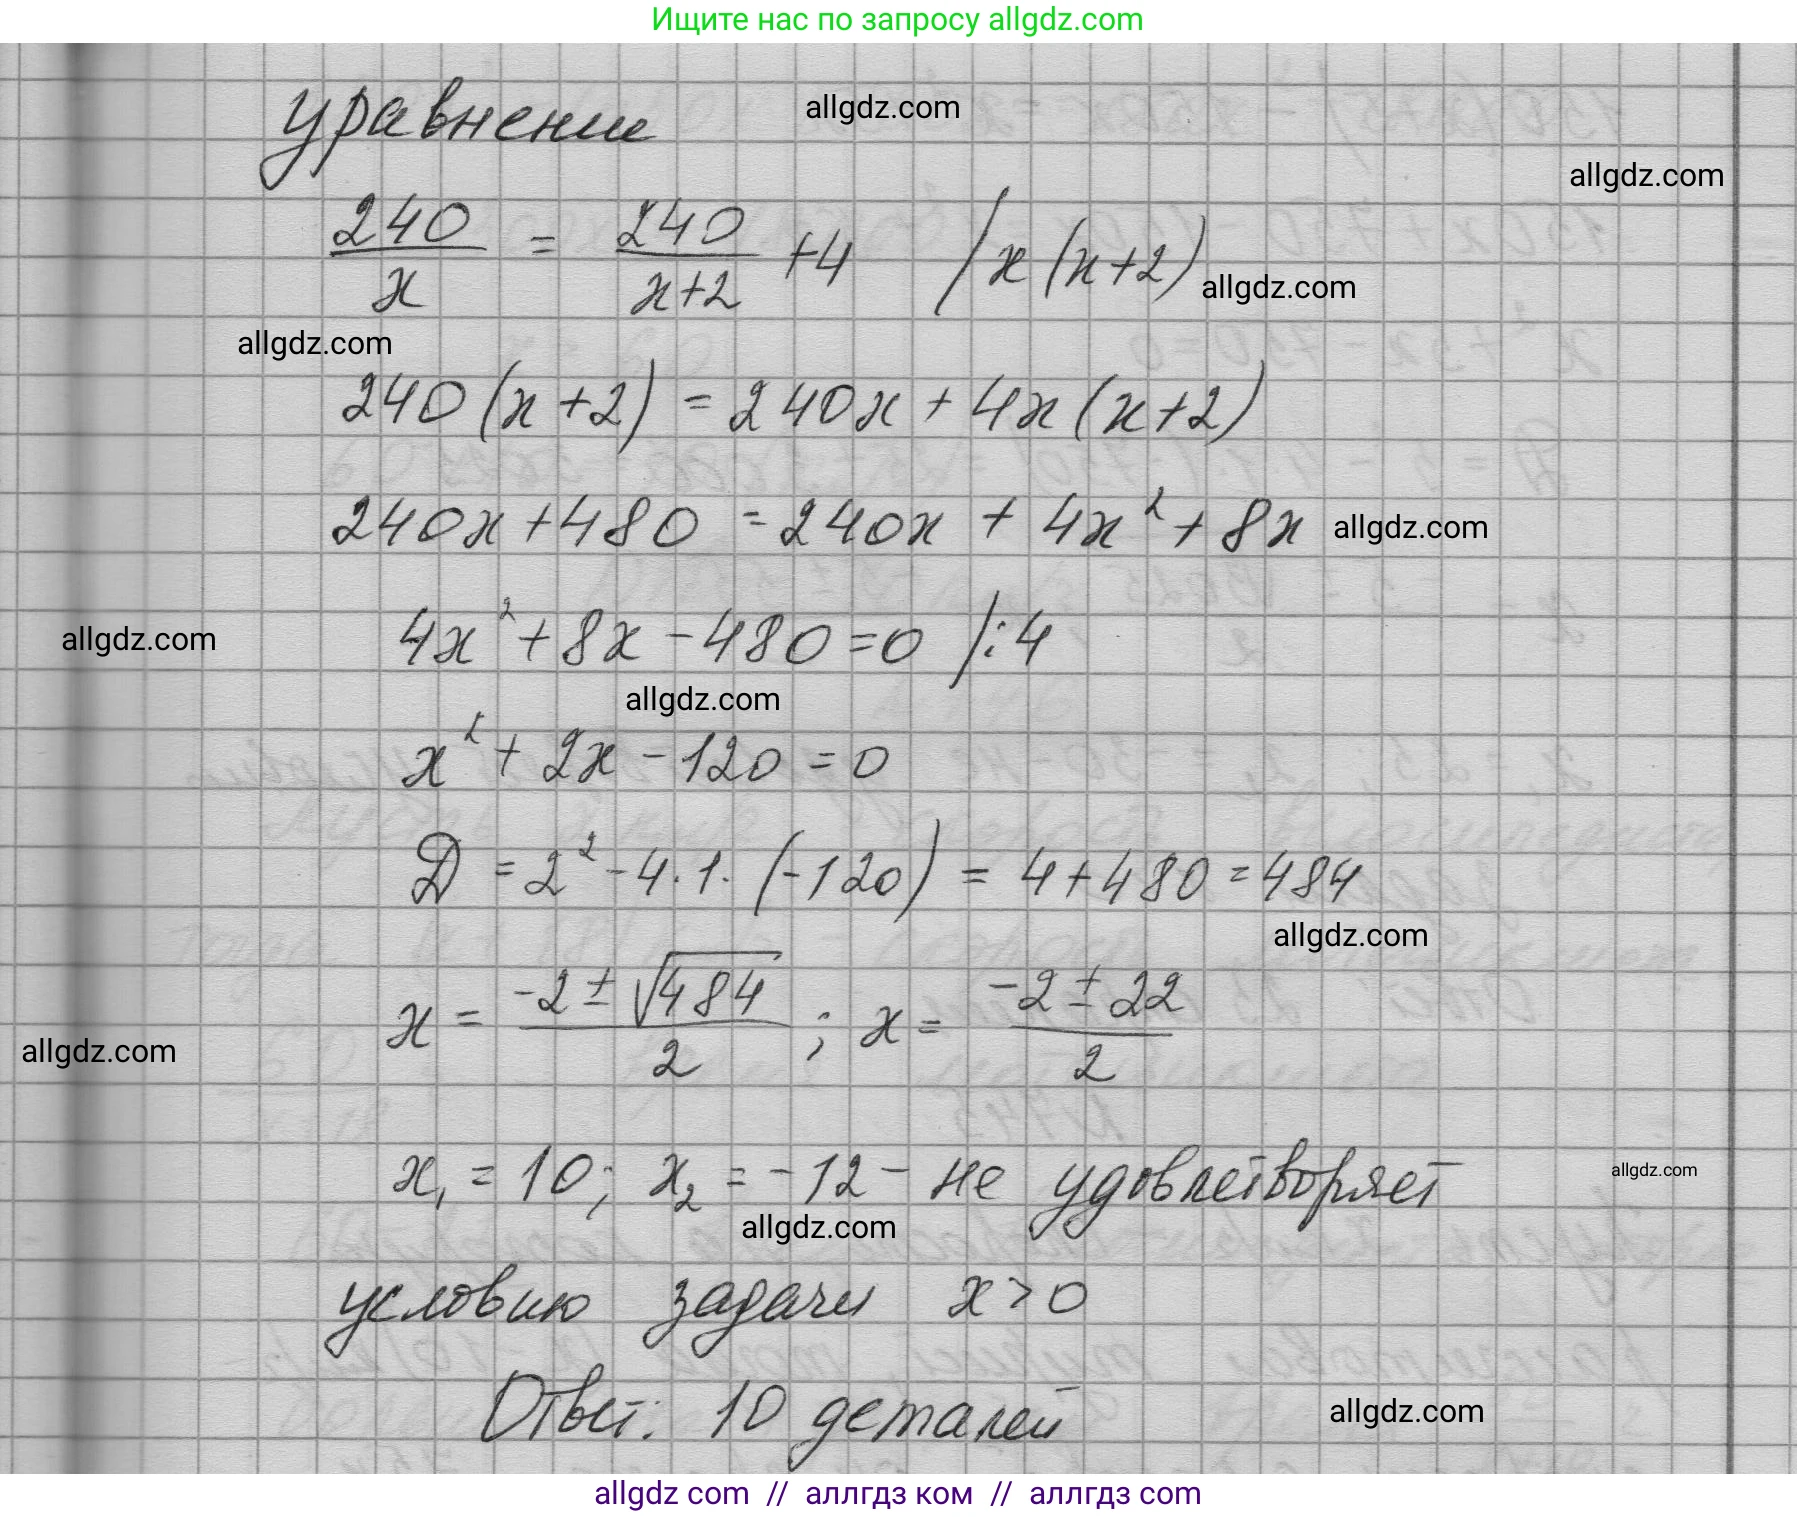 Ищите нас по запросу allgdz.com
уравнение
allgdz.com
allgdz.com
240/x = 240/(x+2) +4 / x(x+2)
allgdz.com
allgdz.com
240(x+2) = 240x + 4x(x+2)
240x+480 = 240x + 4x² + 8x
allgdz.com
4x² + 8x - 480 = 0 /:4
allgdz.com
allgdz.com
x² + 2x - 120 = 0
Д = 2² - 4·1·(-120) = 4+480 = 484
allgdz.com
x = (-2 ± √484)/2 ; x = (-2 ± 22)/2
allgdz.com
x₁ = 10; x₂ = -12 - не удовлетворяет
allgdz.com
allgdz.com
условию задачи x > 0
Ответ: 10 деталей
allgdz.com
allgdz com // аллгдз ком // аллгдз com